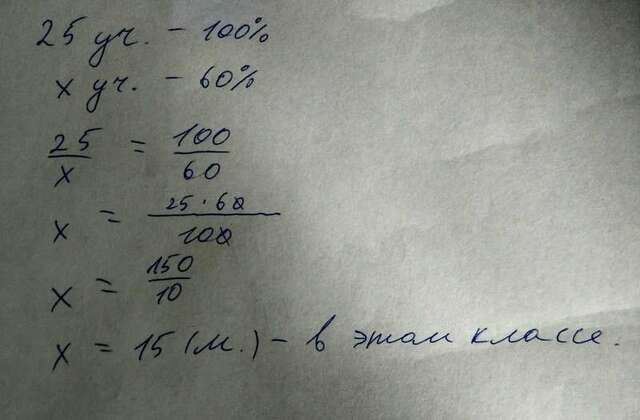 25 уч. – 100%
х уч. – 60%
25/х = 100/60
х = 25·60/100
х = 150/10
х = 15 (м.) – в этом классе.